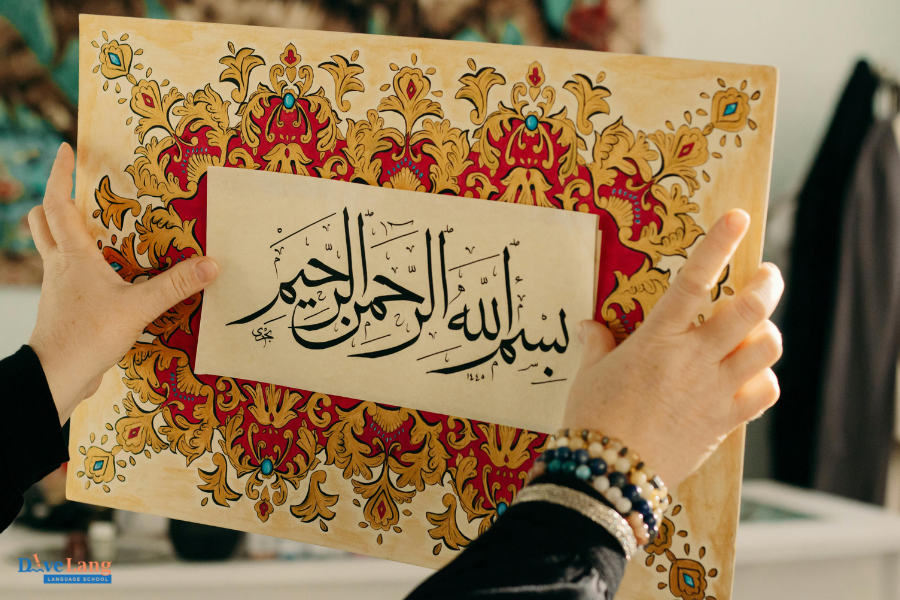 بسم الله الرحمن الرحيم
١٤٤٥
DiveLang
LANGUAGE SCHOOL